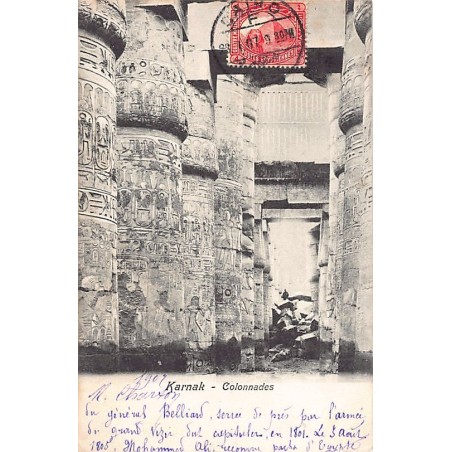 CAIRO
Karnak - Colonnades
1907
du général Belliard, serrée de près par l'armée
du grand Vizir dut capituler, en 1801. Le 3 Août
1805 Mohammed Ali, reconnu pacha d'Egypte